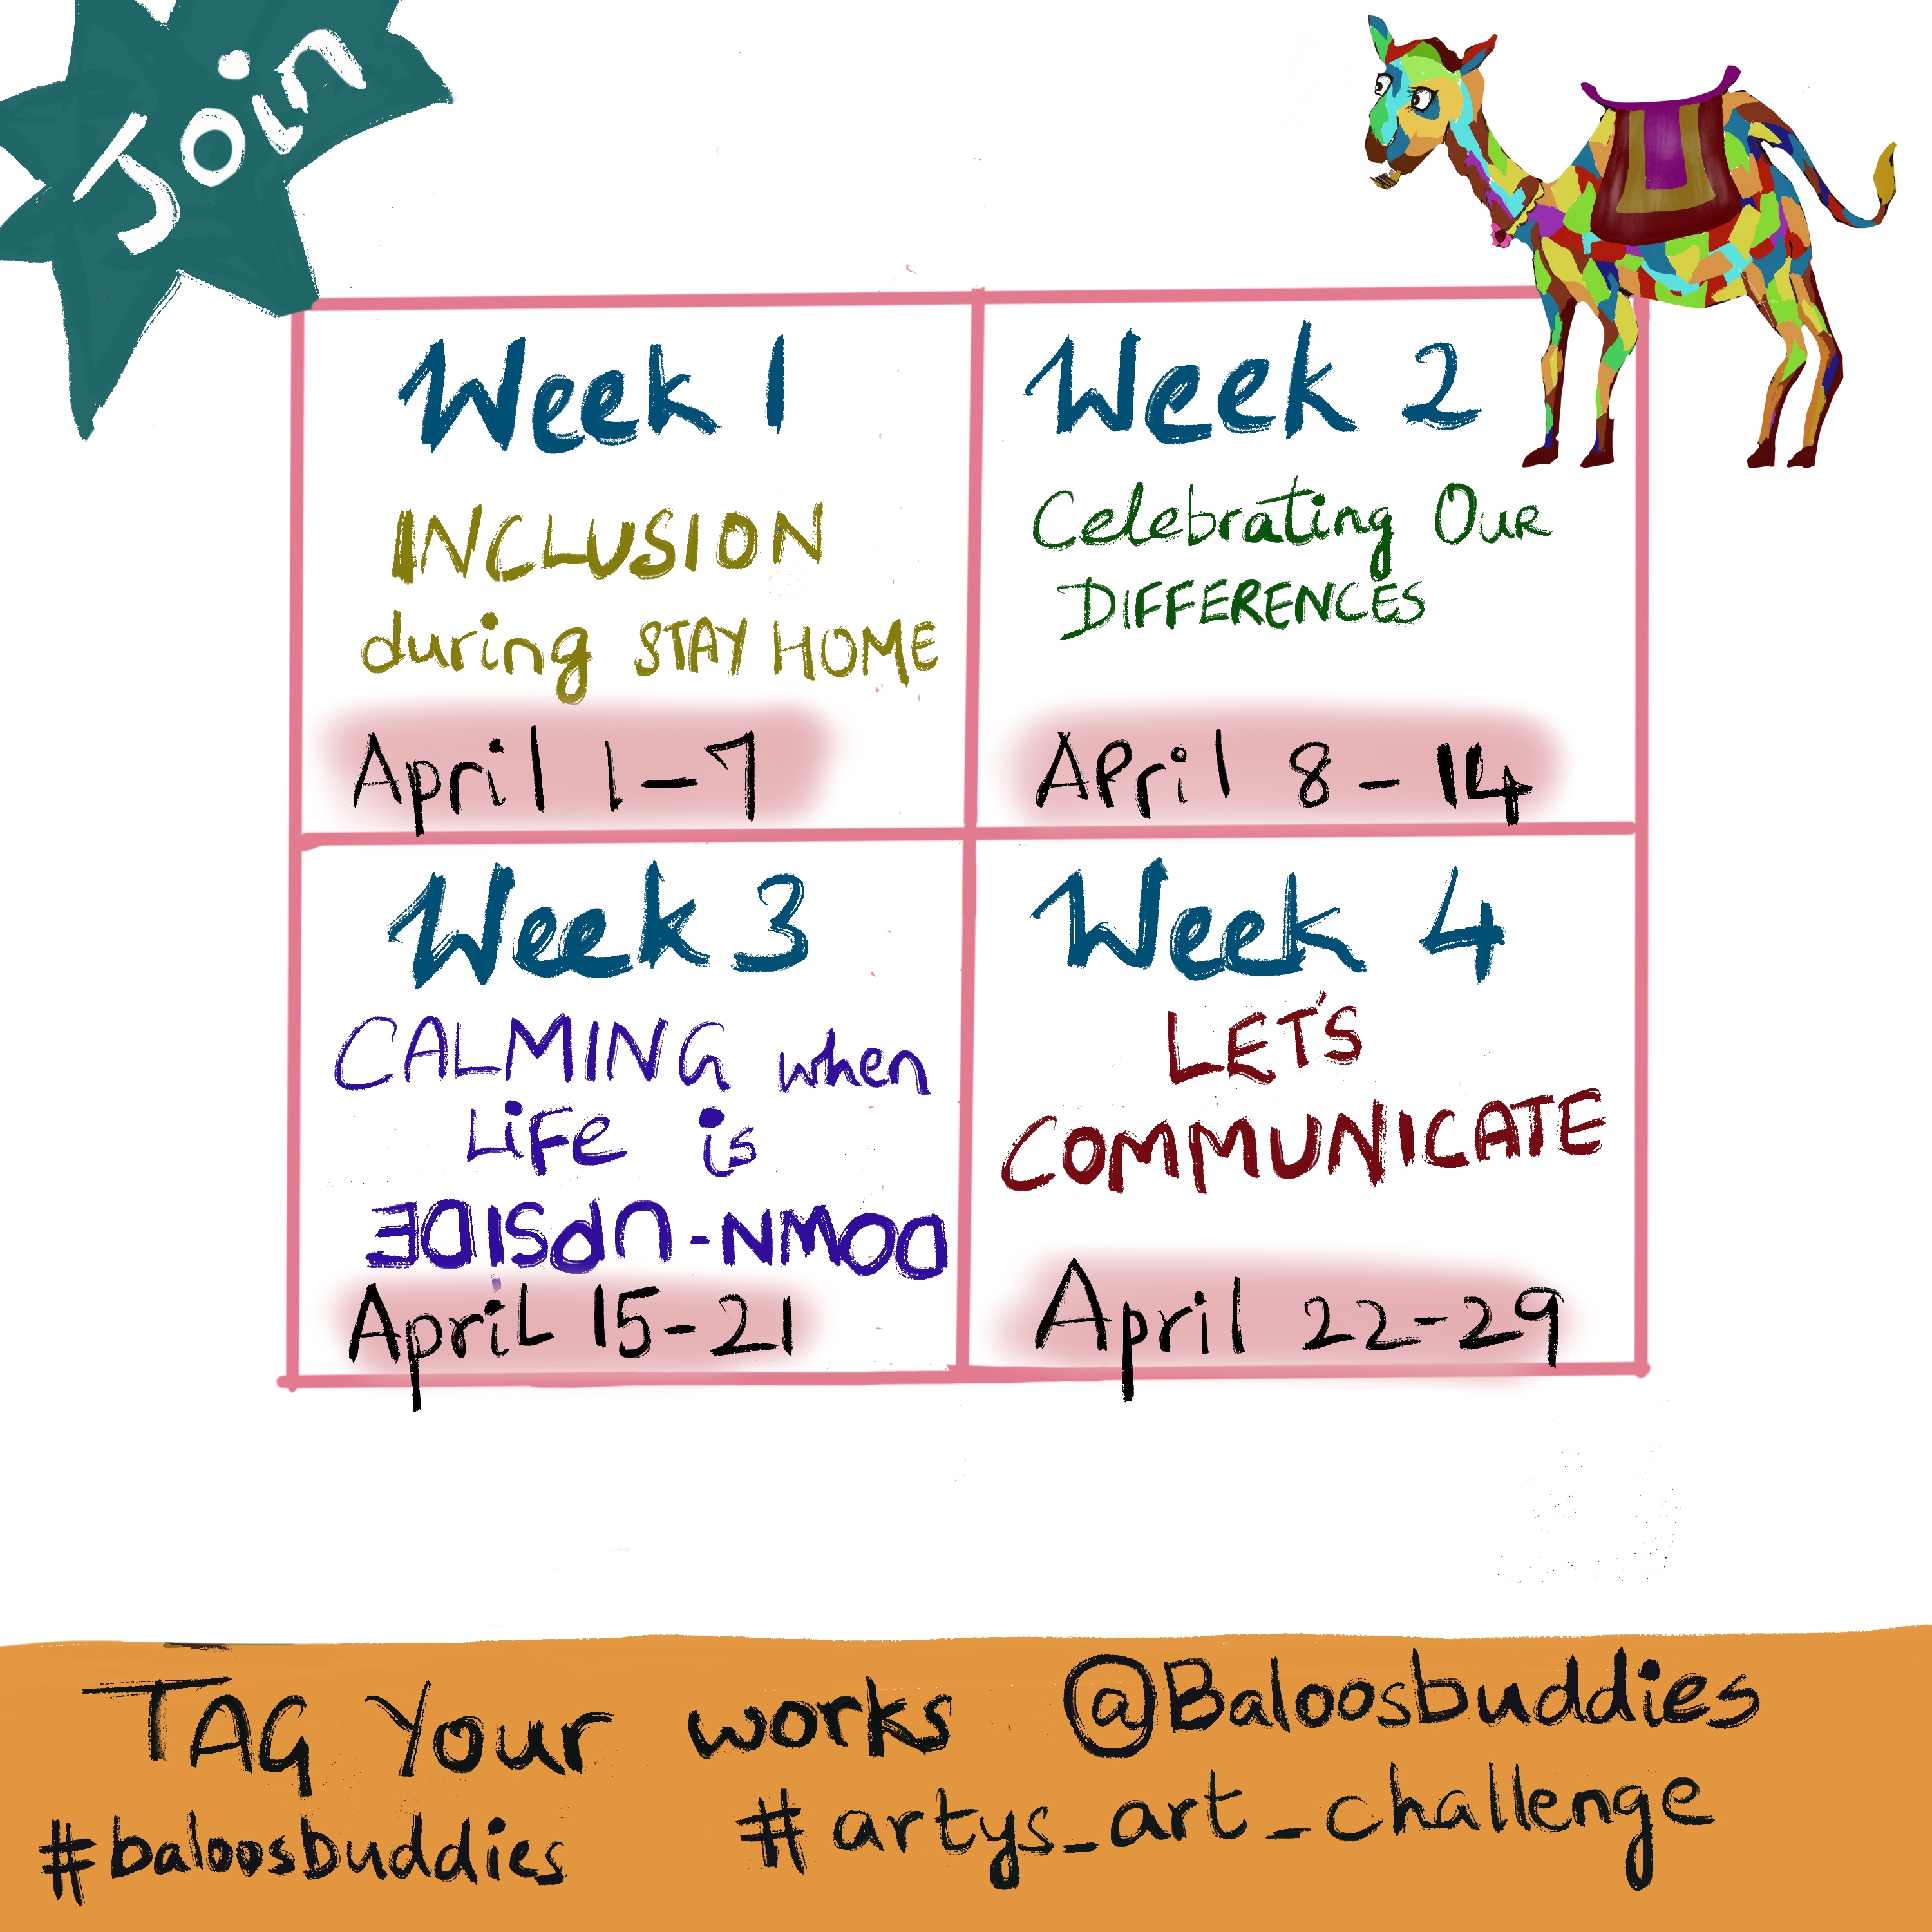 Join
Week 1
INCLUSION
during STAY HOME
April 1-7
Week 2
Celebrating OUR
DIFFERENCES
April 8-14
Week 3
CALMING when
LiFe is
DOWN-UPSIDE
April 15-21
Week 4
LET'S
COMMUNICATE
April 22-29
TAG Your works @Baloosbuddies
#baloosbuddies #artys_art_challenge